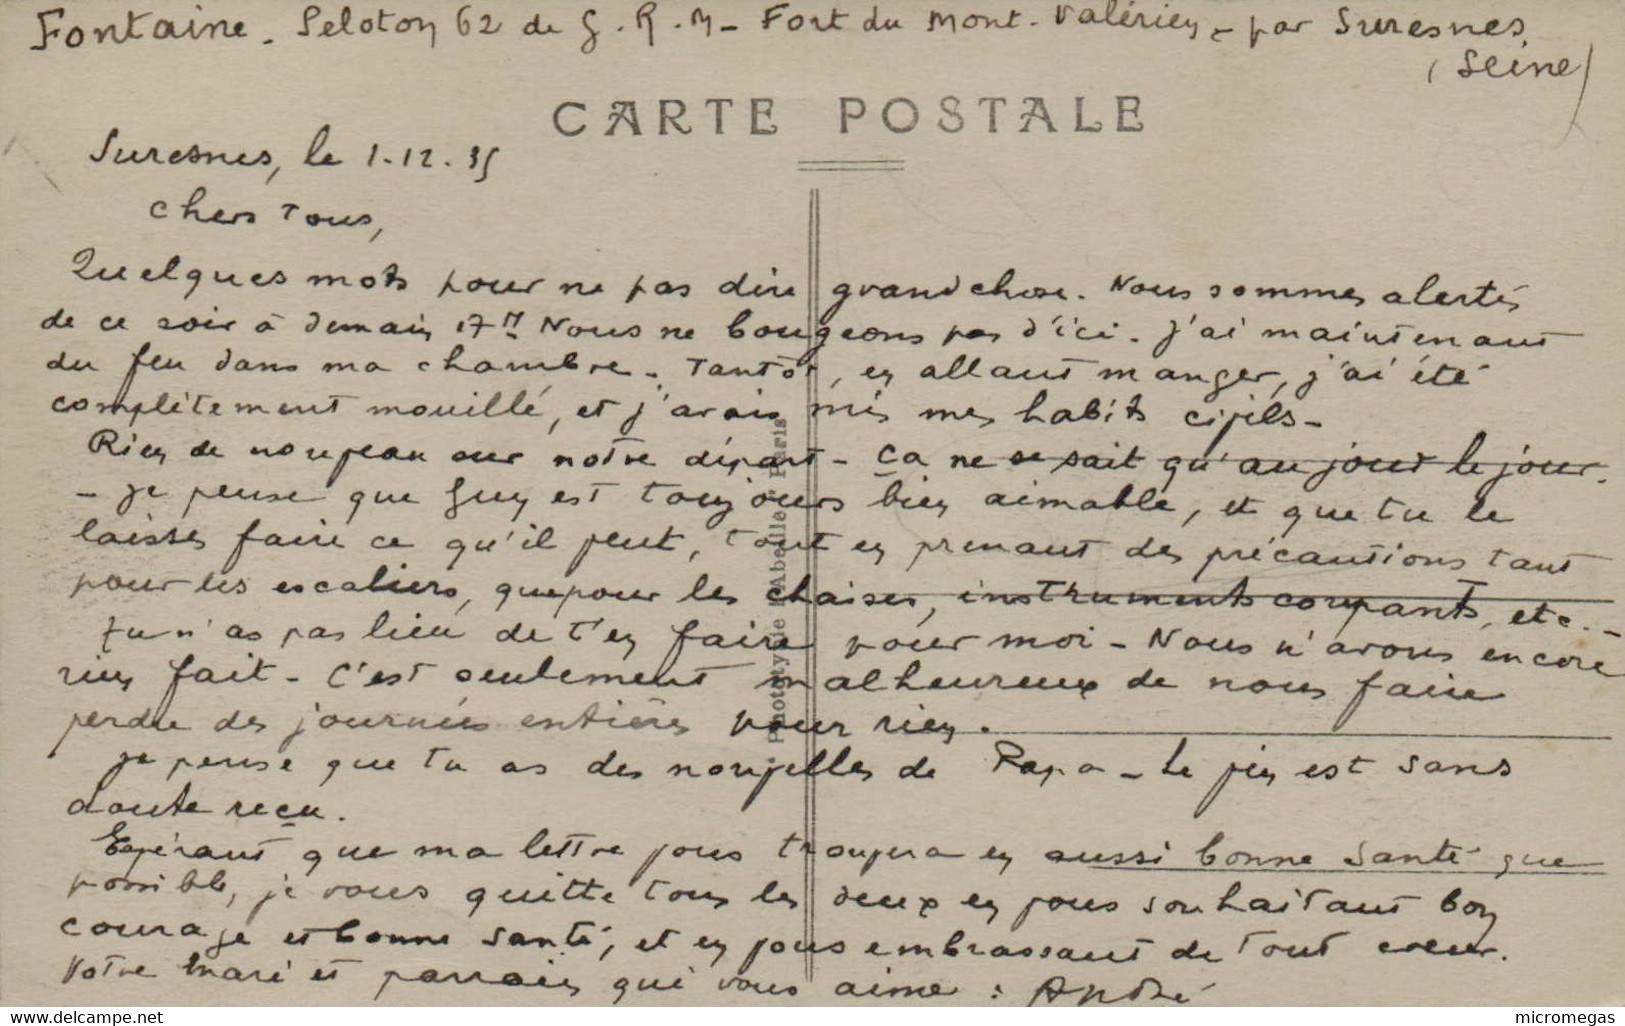 Fontaine - Peloton 62 de G.R.M - Fort du Mont-Valérien - par Suresnes
(Seine)
CARTE POSTALE
Suresnes, le 1-12-35
Chers Tous,
Quelques mots pour ne pas dire grand chose. Nous sommes alertés
de ce soir à demain 17H Nous ne bougeons pas d'ici. J'ai maintenant
du feu dans ma chambre. Tantôt, en allant manger, j'ai été
complètement mouillé, et j'avais mis mes habits civils -
Rien de nouveau sur notre départ - Ça ne se sait qu'au jour le jour.
- Je pense que Guy est toujours bien aimable, et que tu le
laisses faire ce qu'il peut, tout en prenant des précautions tant
pour les escaliers, que pour les chaises, instruments coupants, etc. -
tu n'as pas lieu de t'en faire pour moi - Nous n'avons encore
rien fait - C'est seulement malheureux de nous faire
perdre des journées entières pour rien.
Je pense que tu as des nouvelles de Papa - Le mien est sans
doute reçu.
Espérant que ma lettre vous trouvera en aussi bonne santé que
possible, je vous quitte tous les deux en vous souhaitant bon
courage et bonne santé, et en vous embrassant de tout cœur.
Votre mari et parrain qui vous aime : André
Phototypie l'Abeille - Paris
www.delcampe.net
micromegas